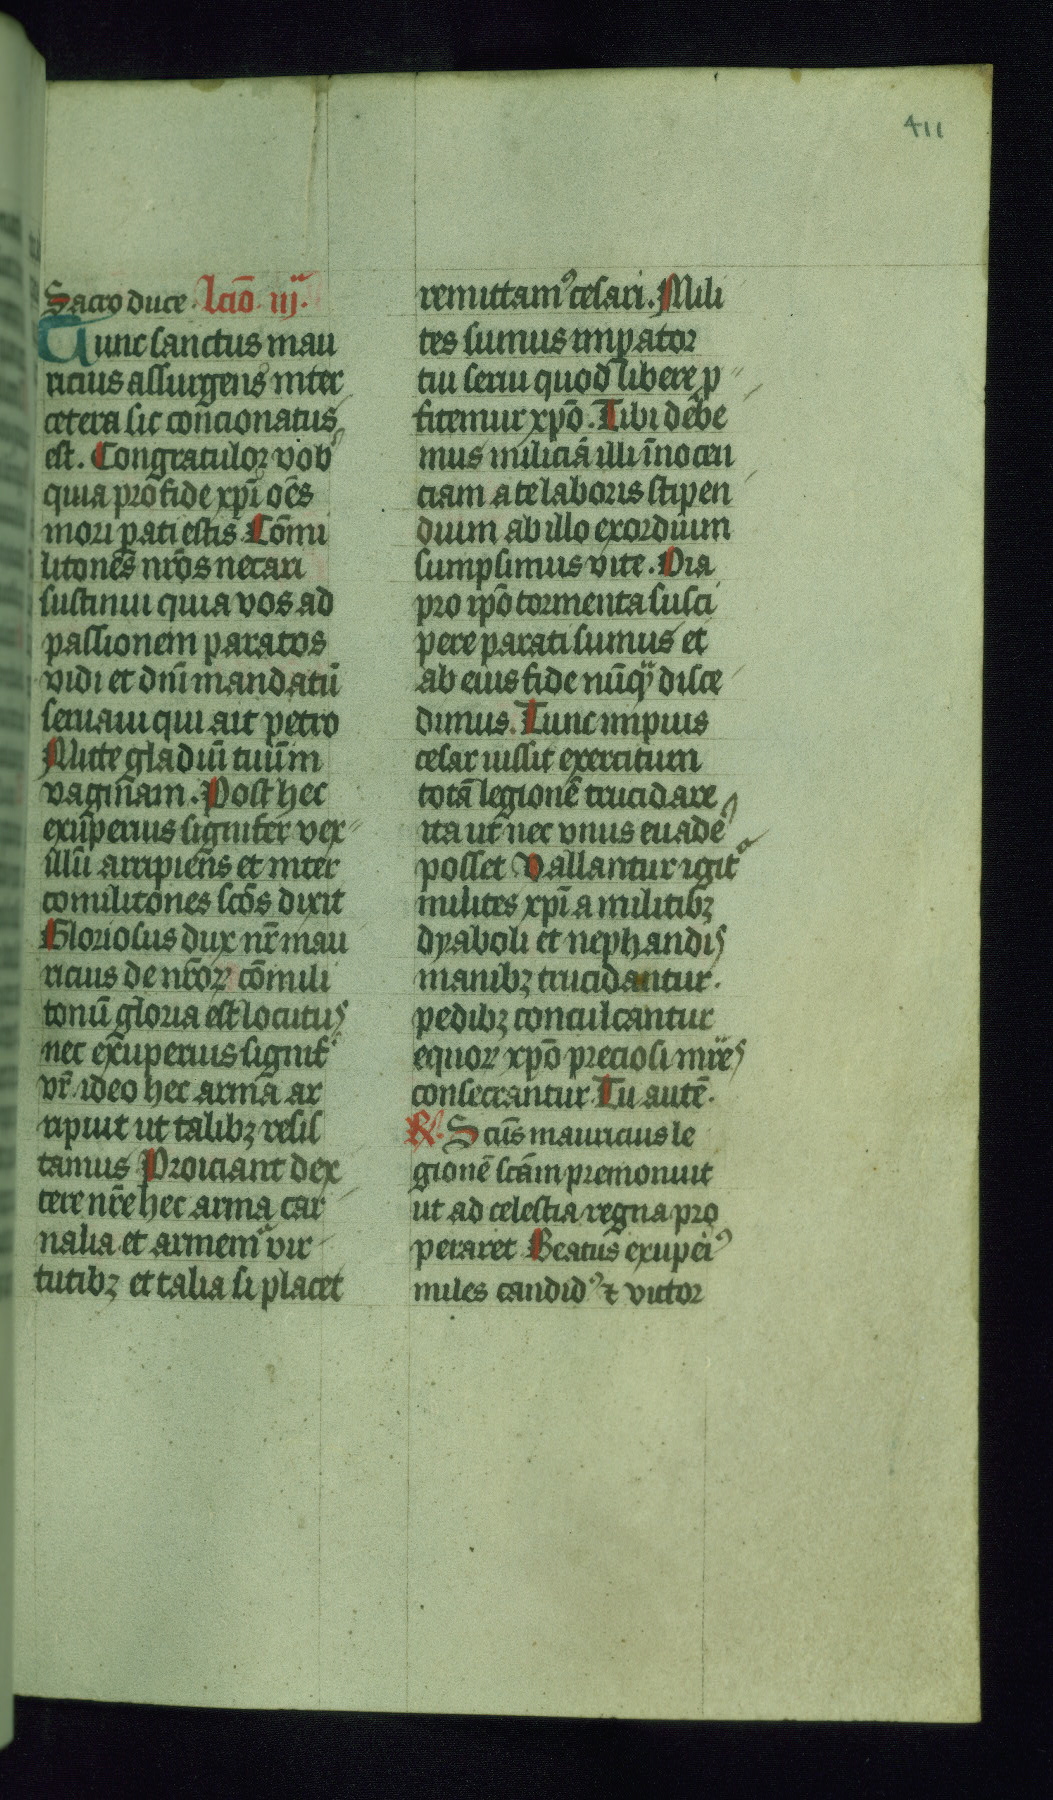 411
Sacro duce. lcīo iij.ᵃ
Tunc sanctus mau
ricius assurgens inter
cetera sic concionatus
est. Congratulor vob
quia pro fide xpī oēs
mori pati estis Cōmi
litones nr̄os necari
sustinui quia vos ad
passionem paratos
vidi et dnī mandatū
seruaui qui ait petro
Mitte gladiū tuū in
vaginam. Post hec
exuperius signifer vex
illū arripiens et inter
comilitones sc̄os dixit
Gloriosus dux nr̄ mau
ricius de nr̄oꝝ cōmili
tonū gloria est locutus
nec exuperius signifʼ
vr̄ ideo hec arma ar
ripuit ut talibꝫ resis
tamus Proiciant dex
tere nr̄e hec arma car
nalia et armemᵘʳ vir
tutibꝫ et talia si placet
remittamꝰ cesari. Mili
tes sumus impator
tui serui quod libere ꝓ
fitemur xpō. Tibi debe
mus miliciā illi īnocen
ciam a te laboris stipen
dium ab illo exordium
sumpsimus vite. Dia
pro ip̄o tormenta susci
pere parati sumus et
ab eius fide nūqᵃ disce
dimus. Tunc impius
cesar iussit exercitum
totā legionē trucidare
ita ut nec vnus euadeʼ
posset Vallantur igitᵘʳ
milites xpī a militibꝫ
dyaboli et nephandis
manibꝫ trucidantur.
pedibꝫ conculcantur
equoꝝ xpō preciosi mr̄es
consecrantur Tu autē.
R̸. Sctūs mauricius le
gionē sc̄am premonuit
ut ad celestia regna pro
peraret Beatus exuperiꝰ
miles candidꝰ ⁊ victor